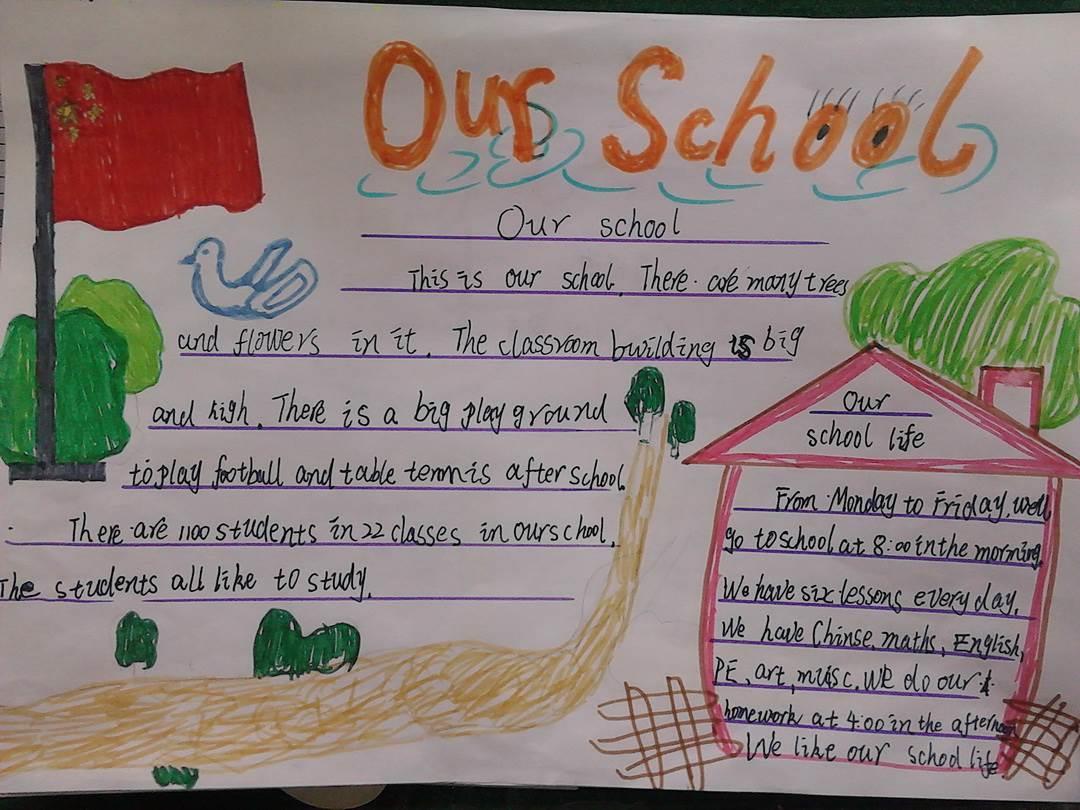 Our School
Our school
This is our school. There are many trees
and flowers in it. The classroom building is big
and high. There is a big play ground
to play football and table tennis after school.
There are 1100 students in 22 classes in our school.
The students all like to study.
Our
school life
From Monday to Friday, well
go to school at 8:00 in the morning.
We have six lessons every day.
We have Chinse, maths, English,
PE, art, muisc. We do our
homework at 4:00 in the afternoon
We like our school life